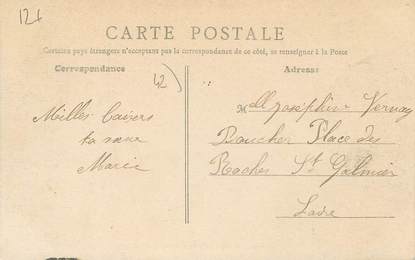 126
CARTE POSTALE
Certains pays étrangers n'acceptant pas la correspondance de ce côté, se renseigner à la Poste
Correspondance
Adresse
42)
Milles baisers
ta sœur
Marie
Mlle Joséphine Vernay
Boucher Place des
Roches St Galmier
Loire